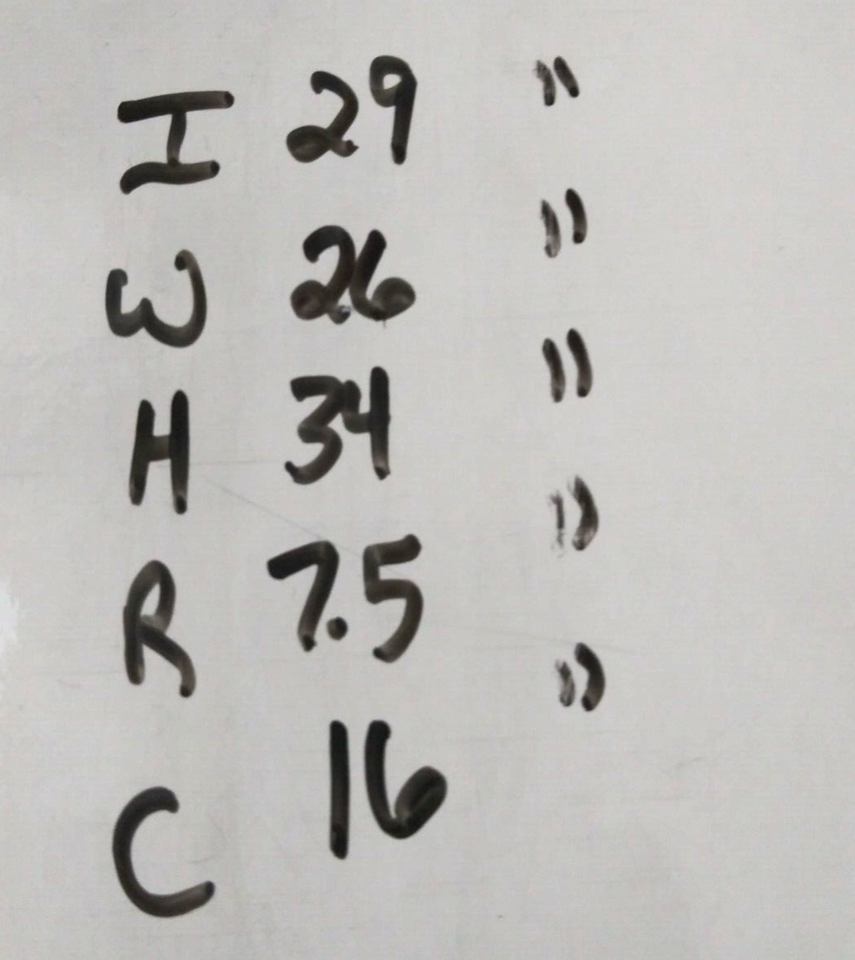 I 29 "
W 26 "
H 34 "
R 7.5 "
C 16 "